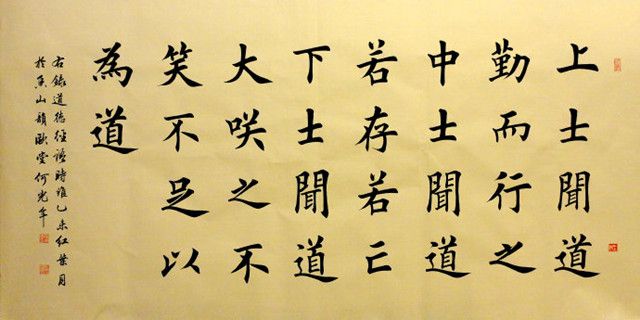 上士聞道
勤而行之
中士聞道
若存若亡
下士聞道
大咲之不
笑不足以
為道
右錄道德經語時維乙未紅葉月
於山韻歐堂何光年